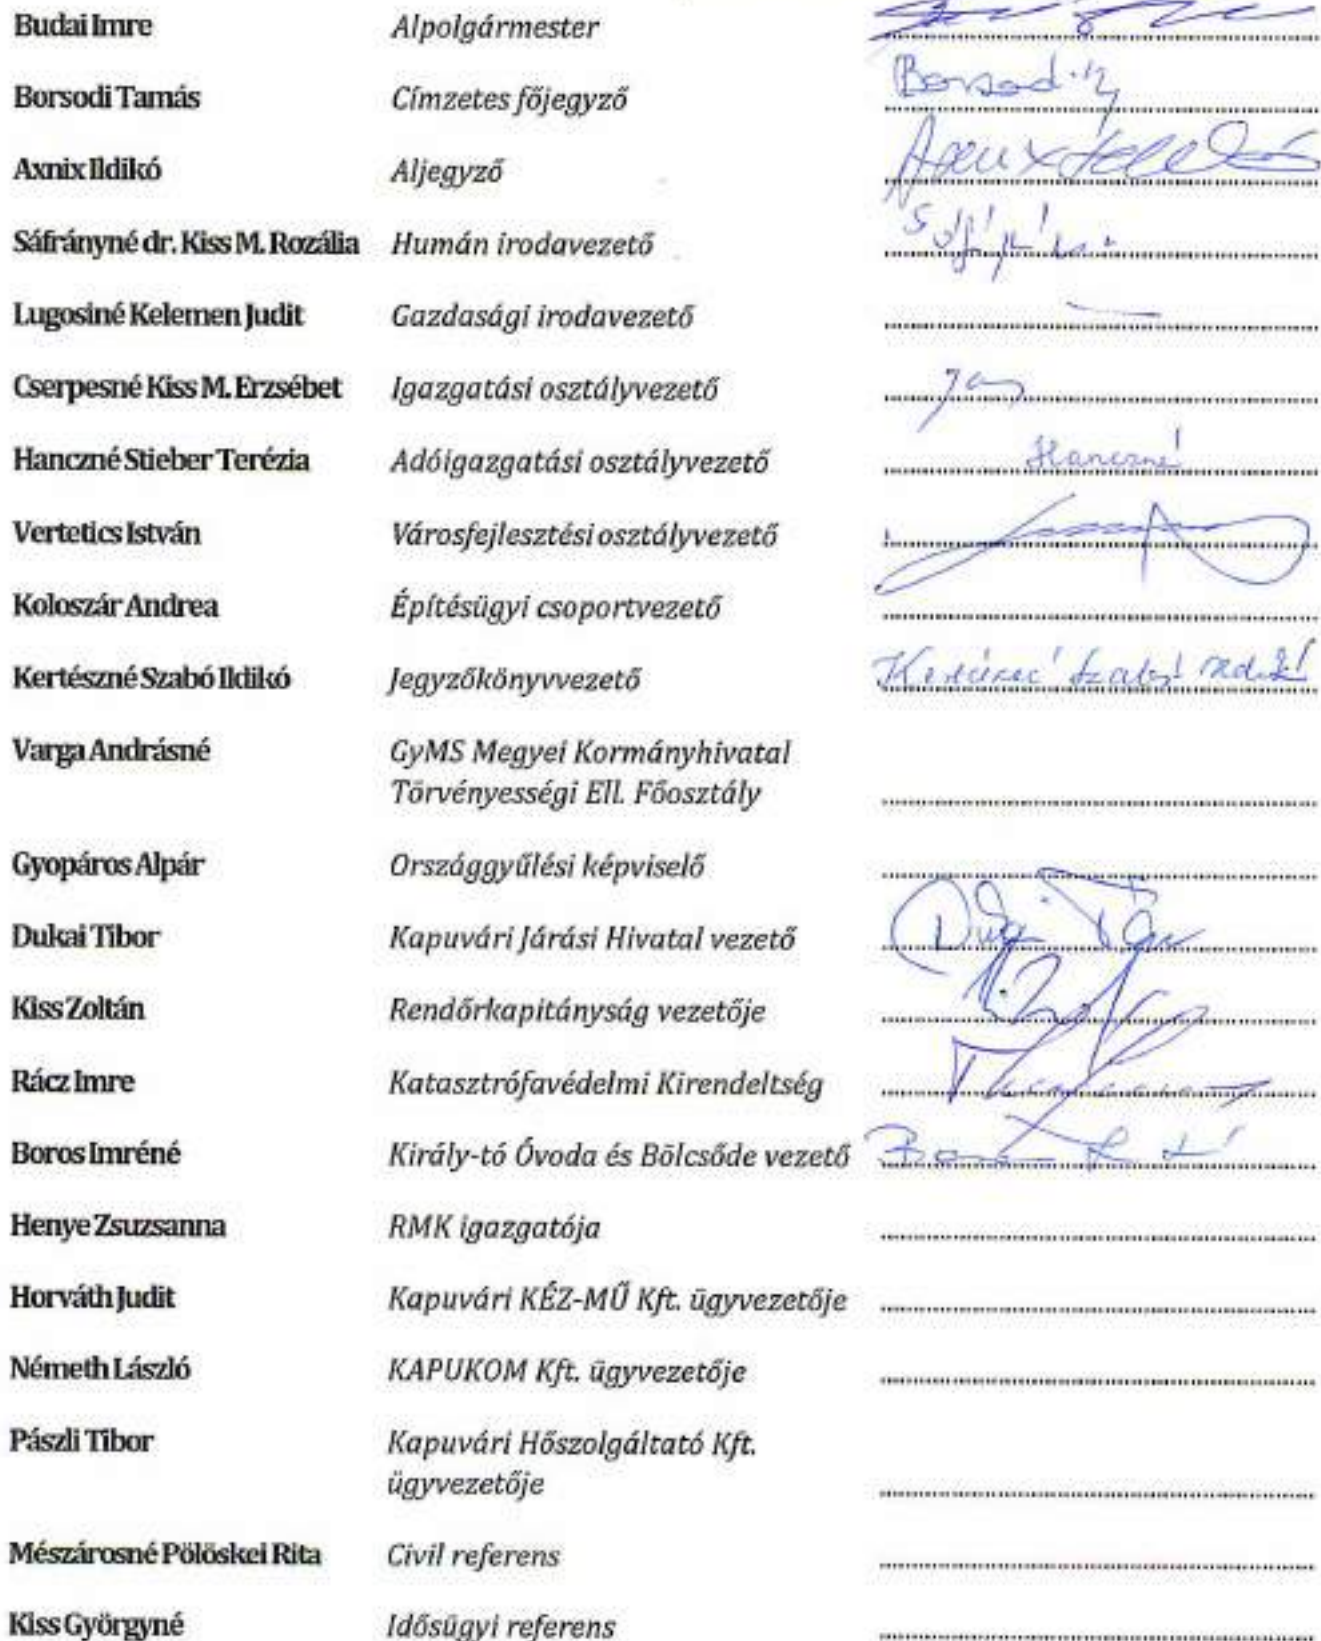 Budai Imre Alpolgármester
Borsodi Tamás Címzetes főjegyző Borsodi
Axnix Ildikó Aljegyző Axnix Ildikó
Sáfrányné dr. Kiss M. Rozália Humán irodavezető
Lugosiné Kelemen Judit Gazdasági irodavezető
Cserpesné Kiss M. Erzsébet Igazgatási osztályvezető
Hanczné Stieber Terézia Adóigazgatási osztályvezető Hanczné
Vertetics István Városfejlesztési osztályvezető
Koloszár Andrea Építésügyi csoportvezető
Kertészné Szabó Ildikó Jegyzőkönyvvezető Kertészné Szabó Ildikó
Varga Andrásné GyMS Megyei Kormányhivatal
Törvényességi Ell. Főosztály
Gyopáros Alpár Országgyűlési képviselő
Dukai Tibor Kapuvári Járási Hivatal vezető
Kiss Zoltán Rendőrkapitányság vezetője
Rácz Imre Katasztrófavédelmi Kirendeltség
Boros Imréné Király-tó Óvoda és Bölcsőde vezető
Henye Zsuzsanna RMK igazgatója
Horváth Judit Kapuvári KÉZ-MŰ Kft. ügyvezetője
Németh László KAPUKOM Kft. ügyvezetője
Pászli Tibor Kapuvári Hőszolgáltató Kft.
ügyvezetője
Mészárosné Pölöskei Rita Civil referens
Kiss Györgyné Idősügyi referens